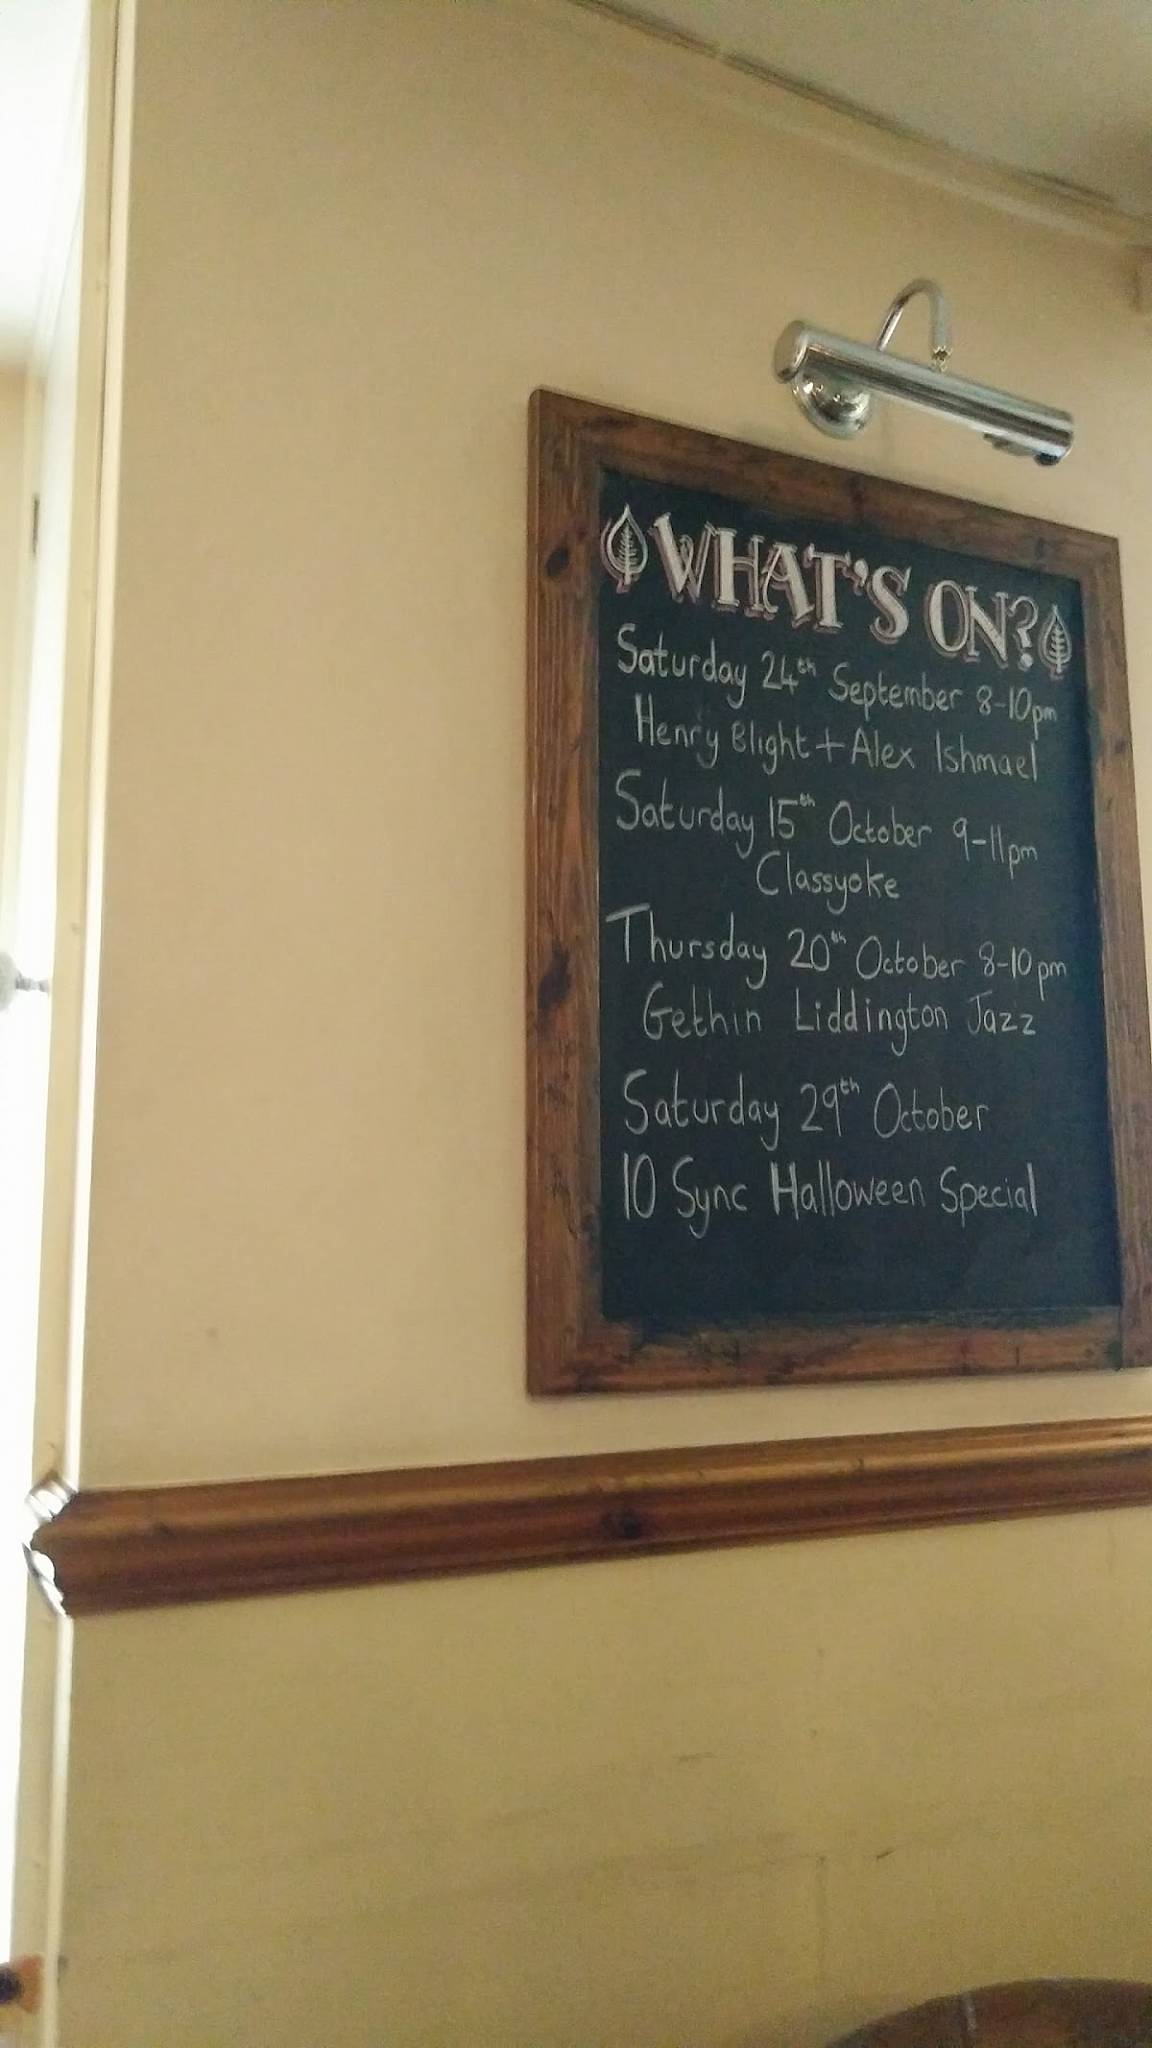 WHAT'S ON?
Saturday 24th September 8-10pm
Henry Blight + Alex Ishmael
Saturday 15th October 9-11pm
Classyoke
Thursday 20th October 8-10pm
Gethin Liddington Jazz
Saturday 29th October
10 Sync Halloween Special